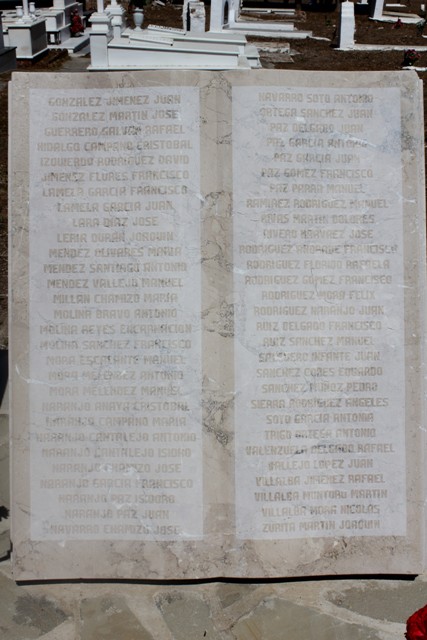 GONZALEZ JIMENEZ JUAN
GONZALEZ MARTIN JOSE
GUERRERO GALVAN RAFAEL
HIDALGO CAMPANO CRISTOBAL
IZQUIERDO RODRIGUEZ DAVID
JIMENEZ FLORES FRANCISCO
LAMELA GARCIA FRANCISCO
LAMELA GARCIA JUAN
LARA DIAZ JOSE
LERIA DURAN JOAQUIN
MENDEZ OLIVARES MARIA
MENDEZ SANTIAGO ANTONIO
MENDEZ VALLEJO MANUEL
MILLAN CHAMIZO MARIA
MOLINA BRAVO ANTONIO
MOLINA REYES ENCARNACION
MOLINA SANCHEZ FRANCISCO
MORA ESCALANTE MANUEL
MORA MELENDEZ ANTONIO
MORA MELENDEZ MANUEL
NARANJO ANAYA CRISTOBAL
NARANJO CAMPANO MARIA
NARANJO CANTALEJO ANTONIO
NARANJO CANTALEJO ISIDRO
NARANJO CHAMIZO JOSE
NARANJO GARCIA FRANCISCO
NARANJO PAZ ISIDORO
NARANJO PAZ JUAN
NAVARRO CHAMIZO JOSE
NAVARRO SOTO ANTONIO
ORTEGA SANCHEZ JUAN
PAZ DELGADO JUAN
PAZ GARCIA ANTONIO
PAZ GARCIA JUAN
PAZ GOMEZ FRANCISCO
PAZ PARRO MANUEL
RAMIREZ RODRIGUEZ MANUEL
RIVAS MARTIN DOLORES
RIVERO NARVAEZ JOSE
RODRIGUEZ FRANCISCA
RODRIGUEZ FLORIDO RAFAELA
RODRIGUEZ GOMEZ FRANCISCO
RODRIGUEZ MORA FELIX
RODRIGUEZ NARANJO JUAN
RUIZ DELGADO FRANCISCO
RUIZ SANCHEZ MANUEL
SALGUERO INFANTE JUAN
SANCHEZ CODES EDUARDO
SANCHEZ MUÑOZ PEDRO
SIERRA RODRIGUEZ ANGELES
SOTO GARCIA ANTONIA
TRIGO ORTEGA ANTONIO
VALENZUELA DELGADO RAFAEL
VALLEJO LOPEZ JUAN
VILLALBA JIMENEZ RAFAEL
VILLALBA MONTORO MARTIN
VILLALBA MORA NICOLAS
ZURITA MARTIN JOAQUIN